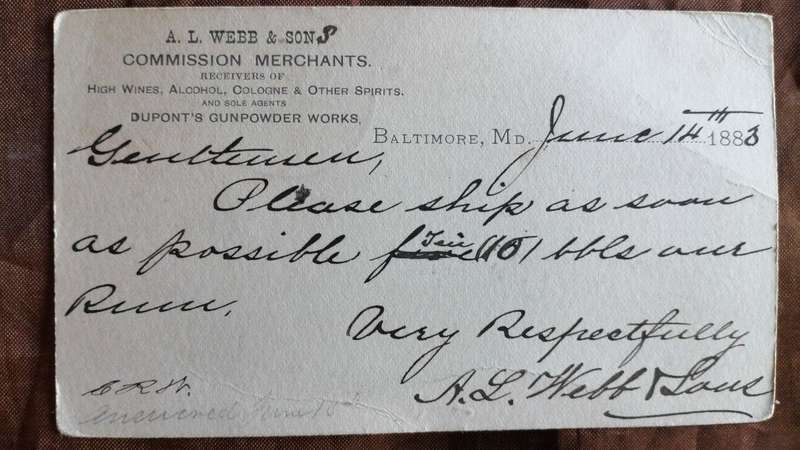 A. L. WEBB & SONS
COMMISSION MERCHANTS.
RECEIVERS OF
HIGH WINES, ALCOHOL, COLOGNE & OTHER SPIRITS.
AND SOLE AGENTS
DUPONT'S GUNPOWDER WORKS,
BALTIMORE, MD. June 14th 1883
Gentlemen,
Please ship as soon
as possible five Ten (10) bbls our
Rum.
Very Respectfully
A. L. Webb & Sons
C R W.
answered June